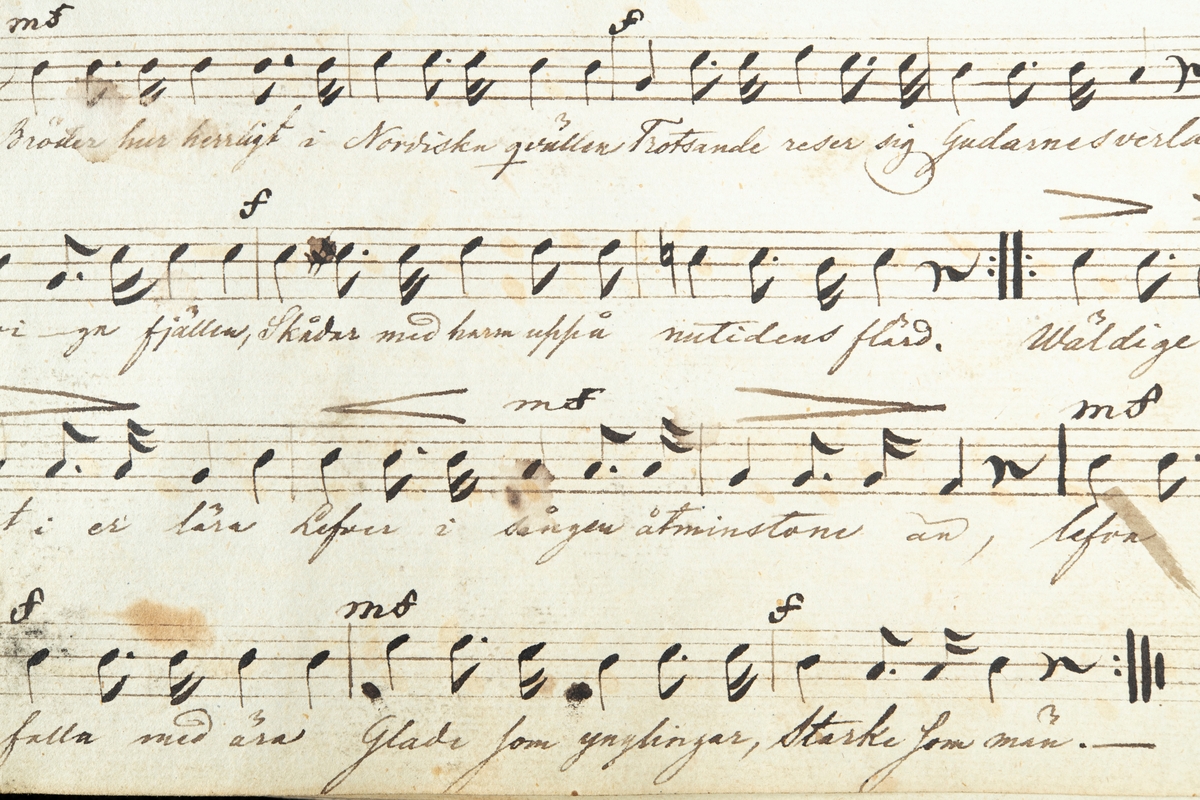 mf f
Bröder hur herrligt i Nordiska qvällen Trotsande reser sig Gudarnes verld
f
gn fjällen, Skådar med harm uppå nutidens flärd. Wäldige
mf mf
t i er lära Lefver i sången åtminstone än, lefva
f mf f
falla med ära Glade som ynglingar, Starke som män.